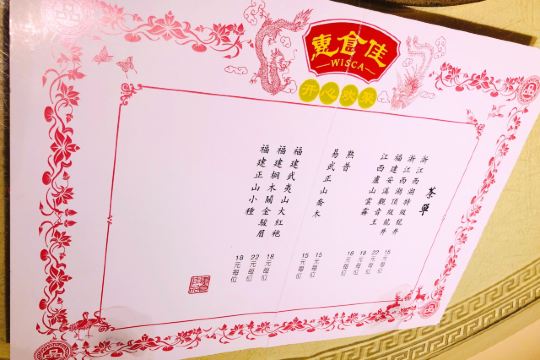 惠食佳
WISCA
开心
茶單
浙江西湖特級龍井
浙江西湖頂級龍井
福建安溪觀音王
江西廬山雲霧
18元每位
22元每位
15元每位
熟普
易武正山喬木
16元每位
15元每位
福建武夷山大紅袍
福建桐木關金駿眉
福建正山小種
15元每位
18元每位
22元每位
18元每位